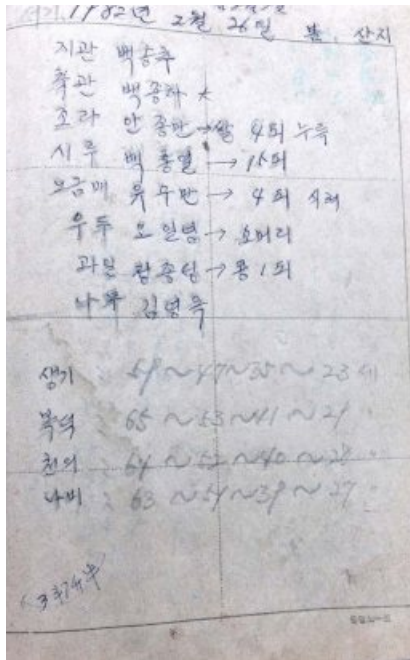 서기 1982년 2월 26일 봄. 산지
지관 백송추
축관 백종하 *
조라 안종만 → 쌀 4되 누룩
시루 백홍일 → 15되
모금매 유수만 → 4되 시려
우두 오일영 → 소머리
과일 황종성 → 콩 1되
나무 김영욱
생기 : 59 ~ 47 ~ 35 ~ 23세
복덕 : 65 ~ 53 ~ 41 ~ 29 "
천의 : 64 ~ 52 ~ 40 ~ 28 "
나비 : 63 ~ 51 ~ 39 ~ 27 "